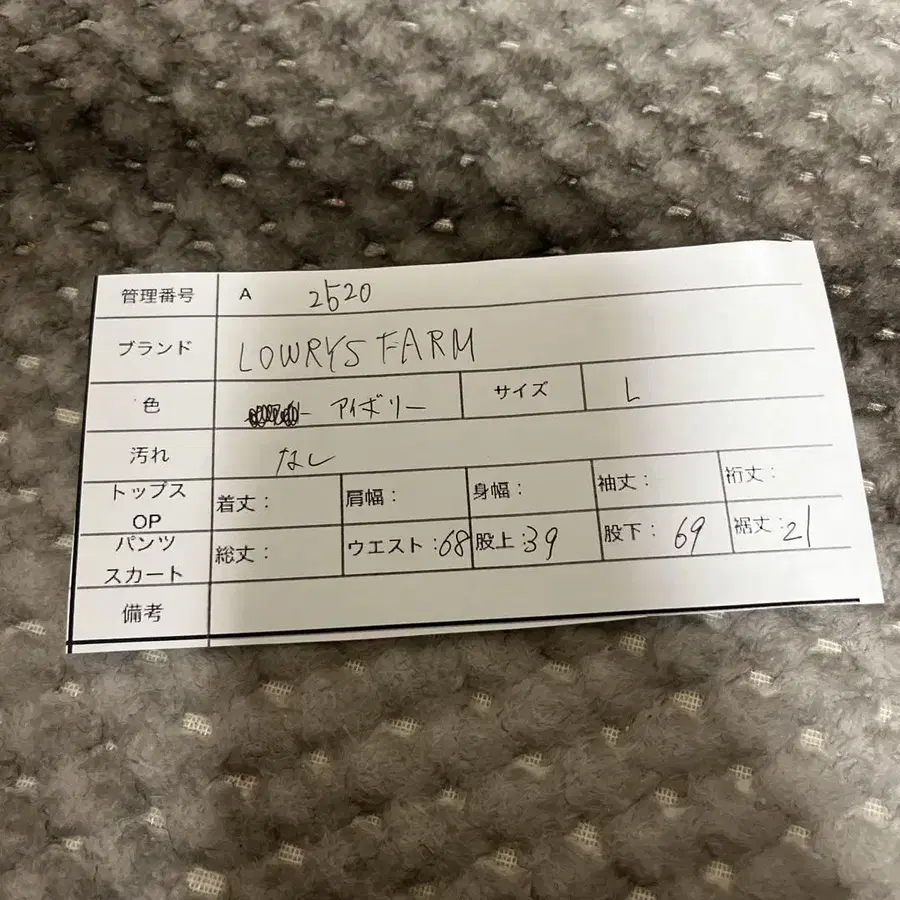 管理番号 A 2520
ブランド LOWRYS FARM
色 アイボリー サイズ L
汚れ なし
トップス OP 着丈: 肩幅: 身幅: 袖丈: 裄丈:
パンツ スカート 総丈: ウエスト:68 股上:39 股下:69 裾丈:21
備考